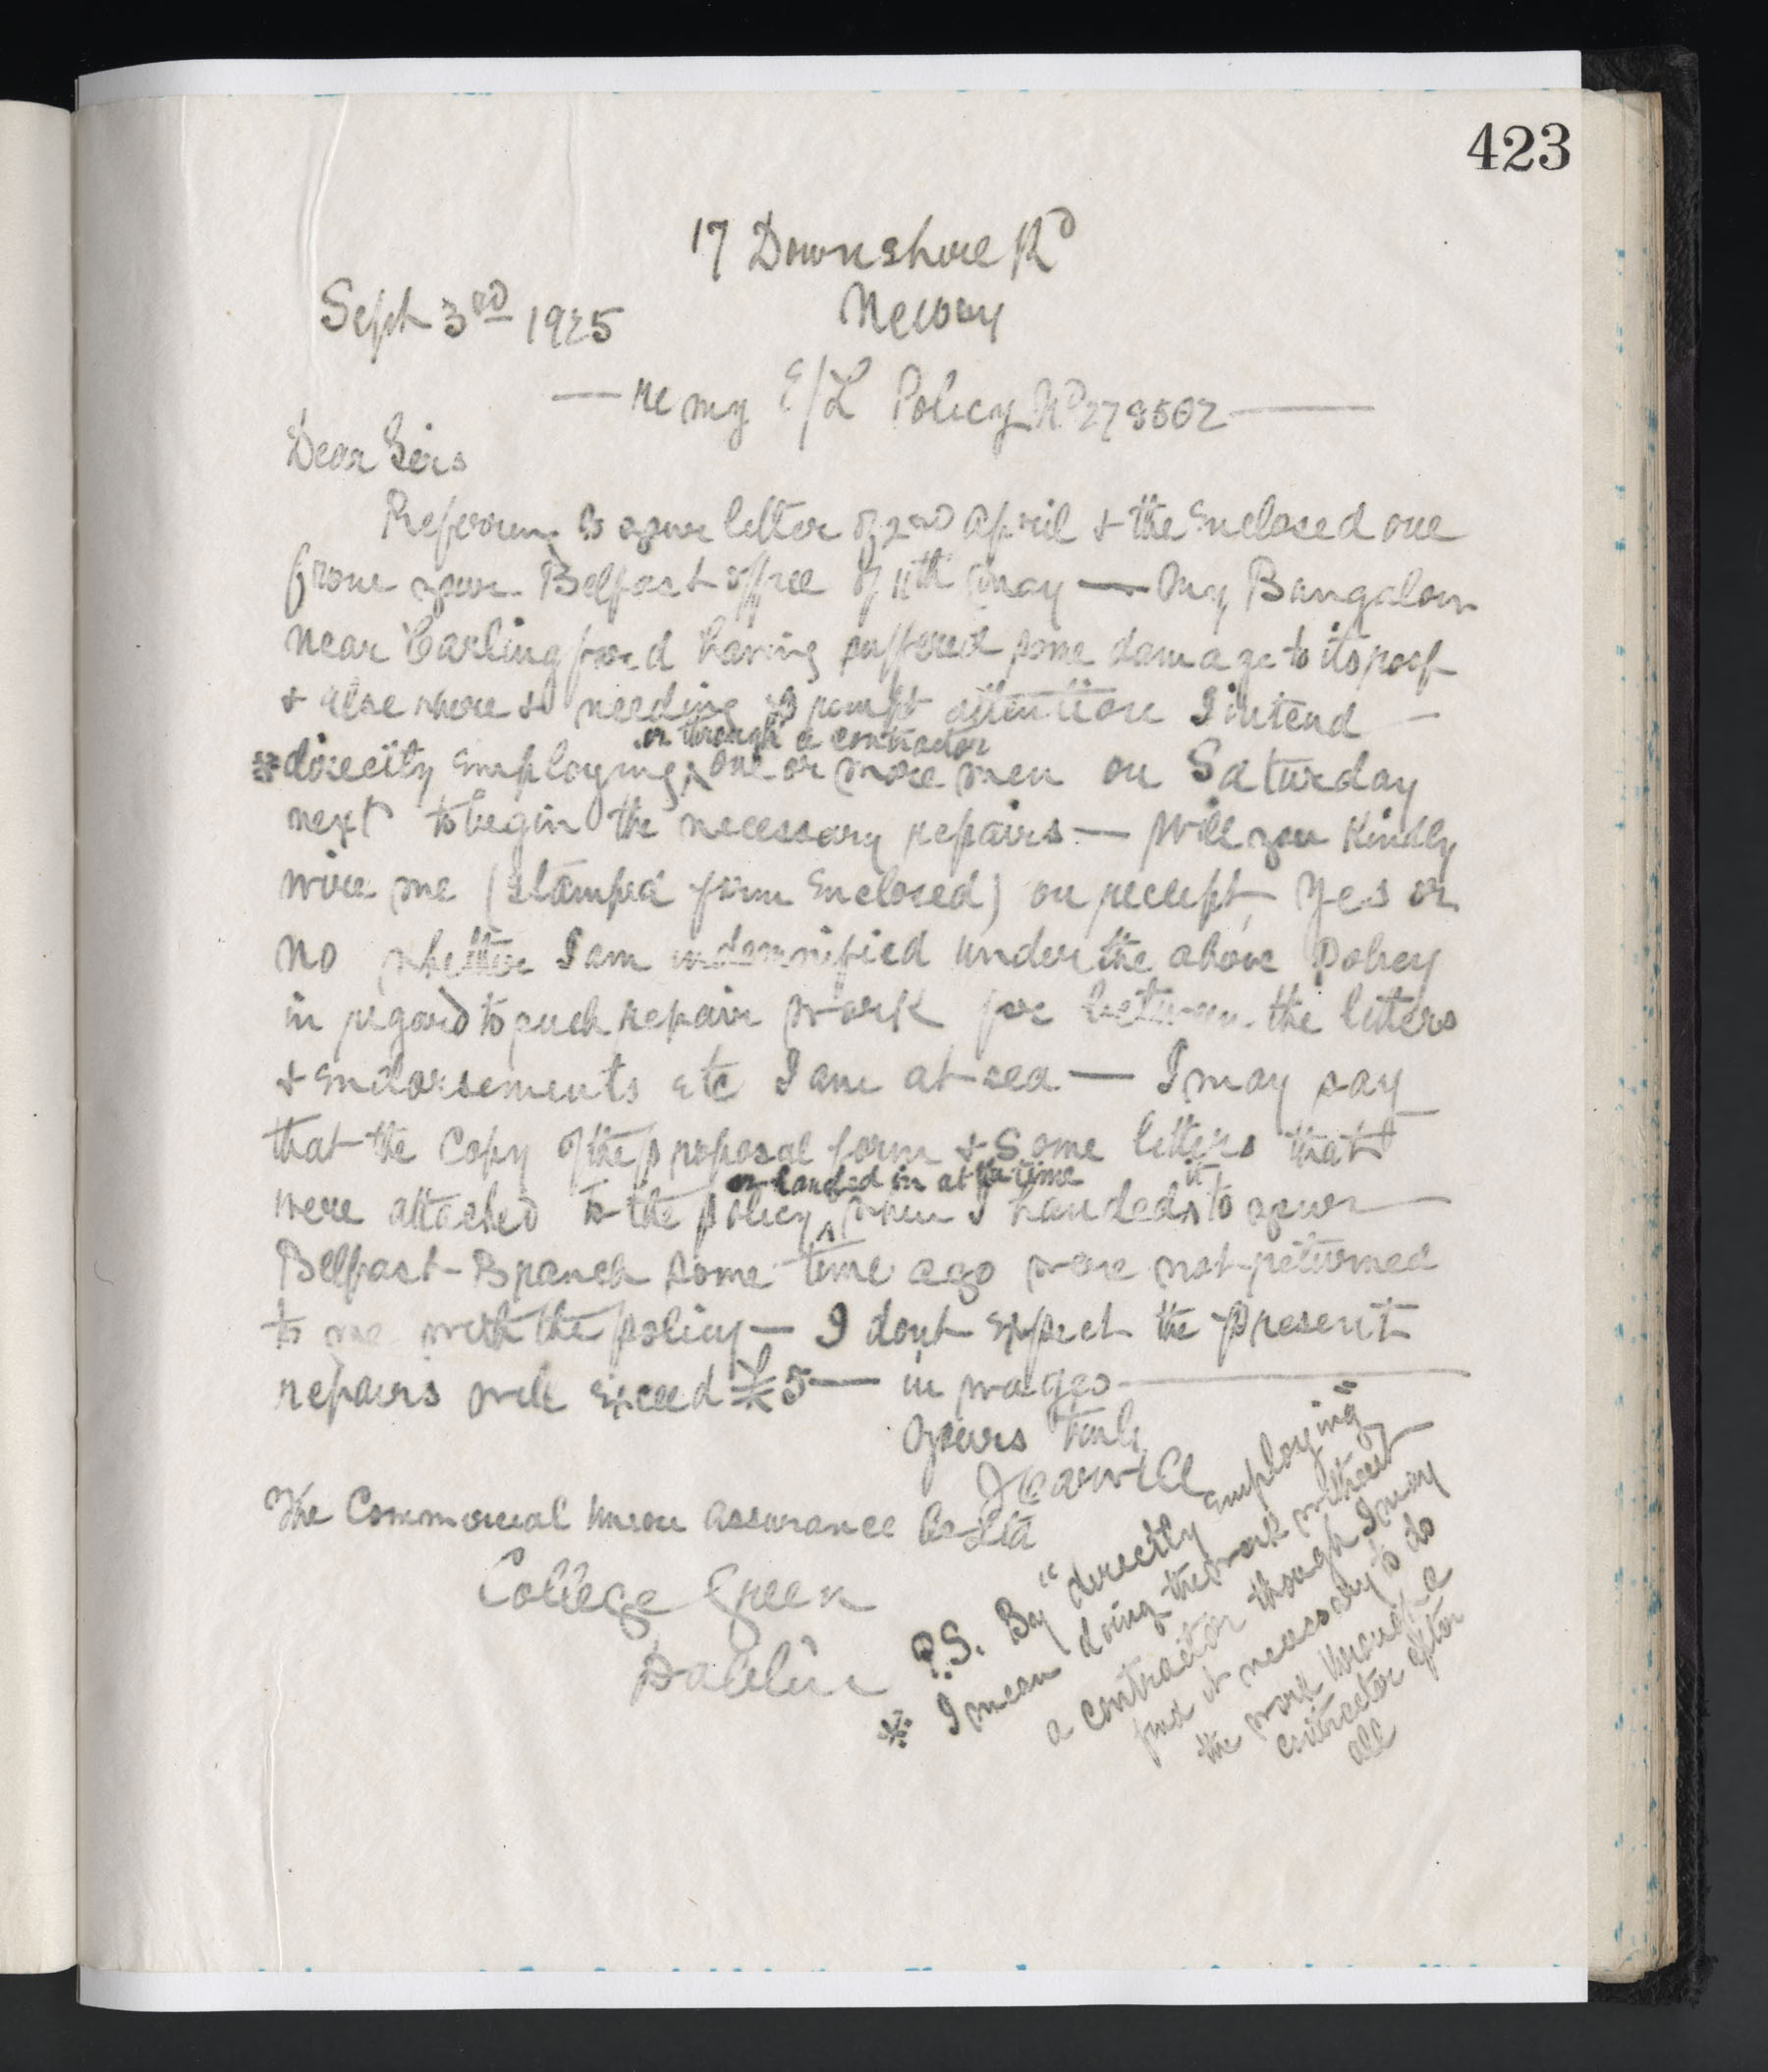 423
17 Downshire Rd
Sept 3rd 1925
Newry
— re my E/L Policy No 278502 —
Dear Sirs
Referring to your letter of 2nd April & the Enclosed one
from your Belfast office of 11th May — My Bungalow
near Carlingford having suffered some damage to its roof
& elsewhere & needing prompt attention I intend —
※ directly Employing ^ or through a contractor one or more men on Saturday
next to begin the necessary repairs — Will you Kindly
wire me (stamped form Enclosed) on receipt Yes or
No whether I am indemnified under the above Policy
in regard to such repair work for between the letters
& Endorsements etc I am at sea — I may say
that the Copy of the proposal form & Some letters that
were attached to the policy ^ or handed in at the time when I handed ^ it to your —
Belfast Branch some time ago were not returned
to me with the policy — I dont Expect the present
repairs will Exceed £5 — in wages —
Yours Truly
The Commercial Union Assurance Co Ltd
College Green
Dublin
※ P.S. By "directly Employing"
I mean doing the work without
a contractor though I may
find it necessary to do
the work through a
contractor after
all